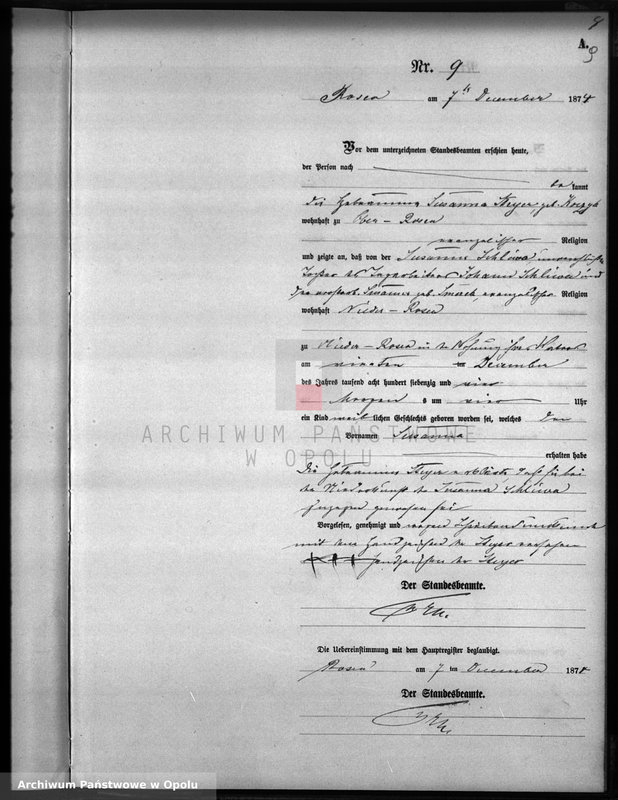 9
A.
9
Nr. 9
Rosen am 7ten December 1874
Vor dem unterzeichneten Standesbeamten erschien heute,
der Person nach
bekannt
die Hebamme Susanna Steyer, geb.
wohnhaft zu Ober-Rosen
evangelischer Religion
und zeigte an, daß von der Susanna Schliwa
Tochter des Johann Schliwa und
der verstorb. Susanna geb. evangelischer Religion
wohnhaft Nieder-Rosen
zu Nieder-Rosen in der Wohnung ihres Vaters
am vierten ten December
des Jahres tausend acht hundert siebenzig und vier
Morgens um vier Uhr
ein Kind weiblichen Geschlechts geboren worden sei, welches den
Vornamen Susanna
erhalten habe
Die Hebamme Steyer erklärte, daß sie bei
der Niederkunft der Susanna Schliwa
zugegen gewesen sei
Vorgelesen, genehmigt und wegen
mit dem Handzeichen der Steyer versehen
+++ Handzeichen der Steyer
Der Standesbeamte.
Die Uebereinstimmung mit dem Hauptregister beglaubigt.
Rosen am 7 ten December 1874
Der Standesbeamte.
ARCHIWUM PAŃSTWOWE
W OPOLU
Archiwum Państwowe w Opolu